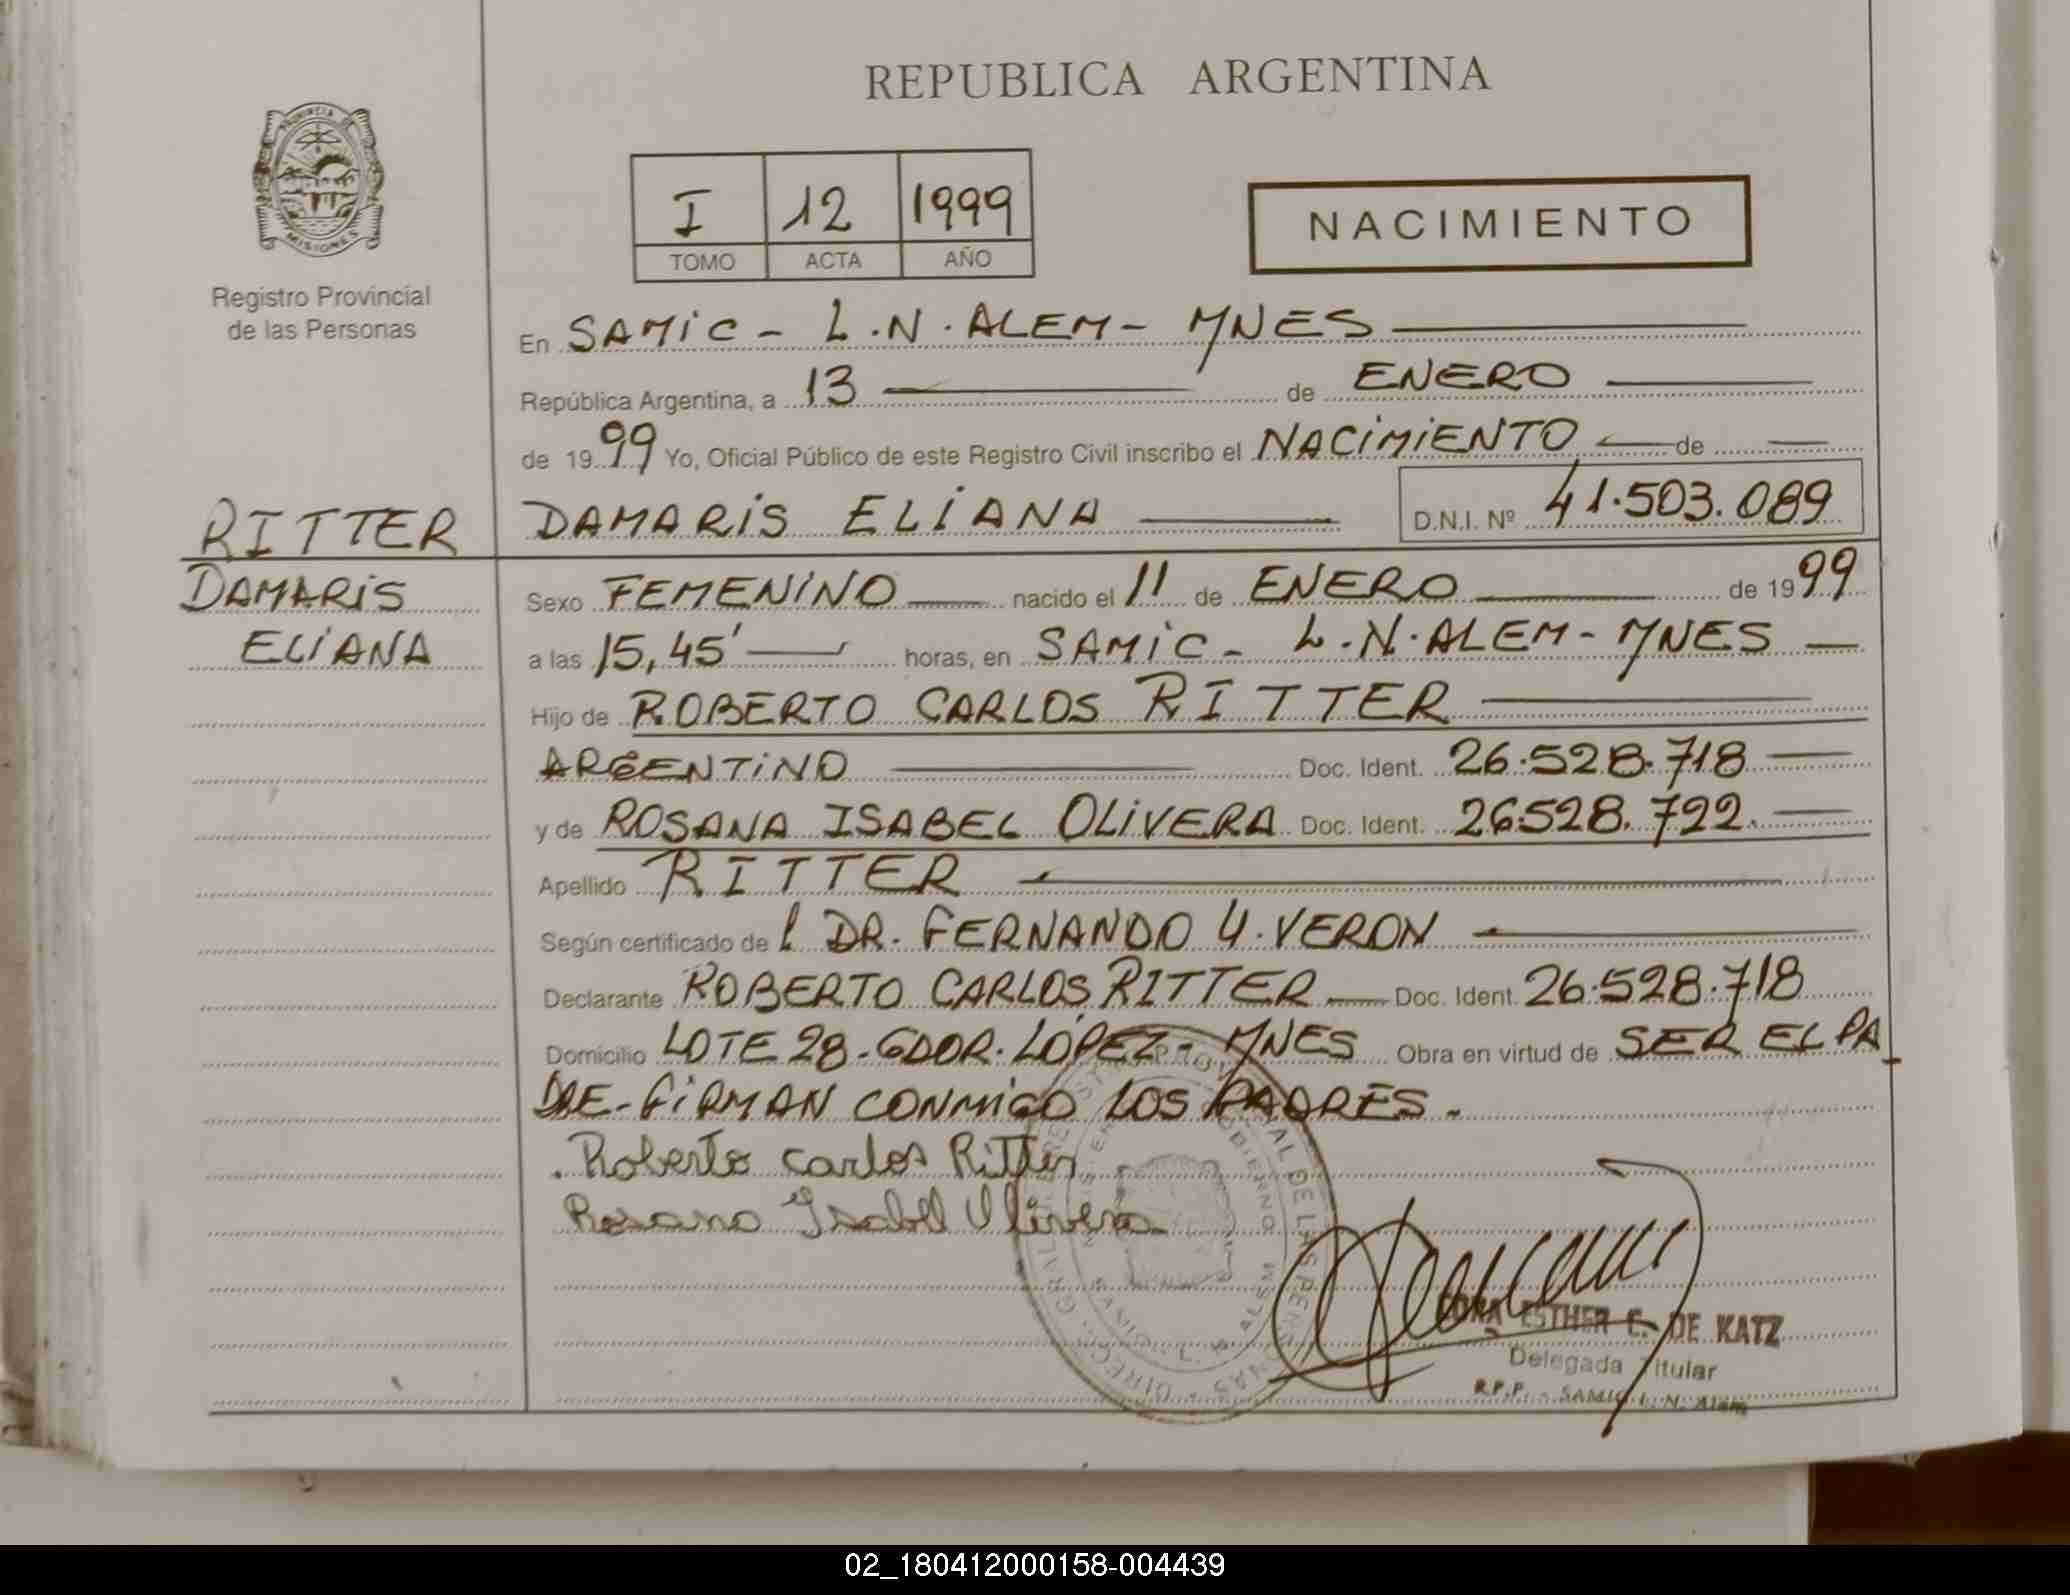 REPUBLICA ARGENTINA
PROVINCIA DE
MISIONES
Registro Provincial
de las Personas
I 12 1999
TOMO ACTA AÑO
NACIMIENTO
En SAMIC - L.N. ALEM - MNES
República Argentina, a 13 de ENERO
de 1999 Yo, Oficial Público de este Registro Civil inscribo el NACIMIENTO de
RITTER
DAMARIS ELIANA D.N.I. Nº 41.503.089
DAMARIS
ELIANA
Sexo FEMENINO nacido el 11 de ENERO de 1999
a las 15,45' horas, en SAMIC - L.N. ALEM - MNES
Hijo de ROBERTO CARLOS RITTER
ARGENTINO Doc. Ident. 26.528.718
y de ROSANA ISABEL OLIVERA Doc. Ident. 26528.722.
Apellido RITTER
Según certificado de DR. FERNANDO U. VERON
Declarante ROBERTO CARLOS RITTER Doc. Ident. 26.528.718
Domicilio LOTE 28 - GDOR. LOPEZ - MNES Obra en virtud de SER EL PA
DRE - FIRMAN CONMIGO LOS PADRES.
Roberto Carlos Ritter
Rosana Isabel Olivera
ESTHER C. DE KATZ
Delegada Titular
R.P.P. - SAMIC L. N. Alem
02_180412000158-004439